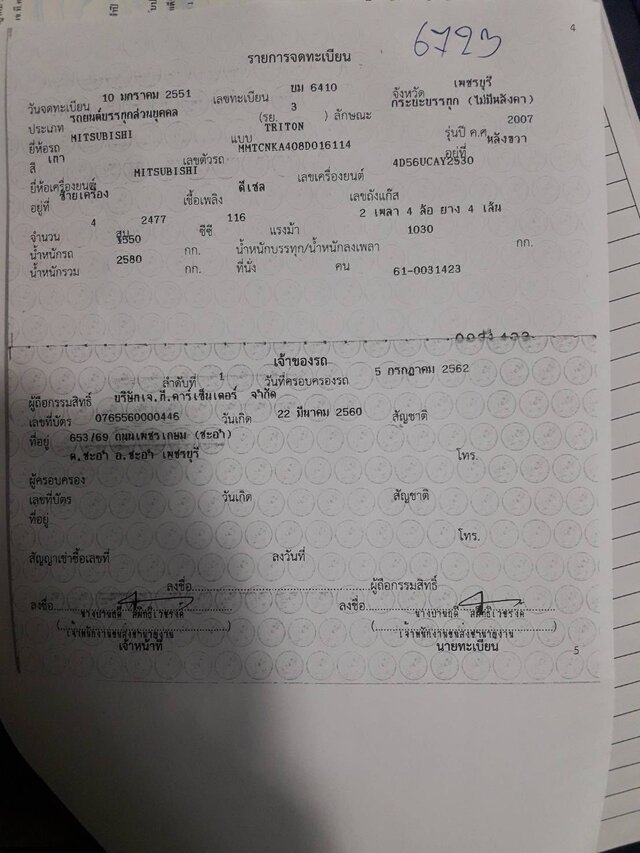 6723
4
รายการจดทะเบียน
วันจดทะเบียน 10 มกราคม 2551 เลขทะเบียน บม 6410 จังหวัด เพชรบุรี
ประเภท รถยนต์บรรทุกส่วนบุคคล (รย. 3 ) ลักษณะ กระบะบรรทุก (ไม่มีหลังคา)
ยี่ห้อรถ MITSUBISHI แบบ TRITON รุ่นปี ค.ศ. 2007
สี เทา เลขตัวรถ MMTCNKA408D016114 อยู่ที่ หลังขวา
ยี่ห้อเครื่องยนต์ MITSUBISHI เลขเครื่องยนต์ 4D56UCAY2530
อยู่ที่ ซ้ายเครื่อง เชื้อเพลิง ดีเซล เลขถังแก๊ส
จำนวน 4 สูบ 2477 ซีซี 116 แรงม้า 2 เพลา 4 ล้อ ยาง 4 เส้น
น้ำหนักรถ 1550 กก. น้ำหนักบรรทุก/น้ำหนักลงเพลา 1030 กก.
น้ำหนักรวม 2580 กก. ที่นั่ง คน 61-0031423
เจ้าของรถ
ลำดับที่ 1 วันที่ครอบครองรถ 5 กรกฎาคม 2562
ผู้ถือกรรมสิทธิ์ บริษัทเจ.ที.คาร์เซ็นเตอร์ จำกัด
เลขที่บัตร 0765560000446 วันเกิด 22 มีนาคม 2560 สัญชาติ
ที่อยู่ 653/69 ถนนเพชรเกษม (ชะอำ)
ต.ชะอำ อ.ชะอำ เพชรบุรี โทร.
ผู้ครอบครอง
เลขที่บัตร วันเกิด สัญชาติ
ที่อยู่
โทร.
สัญญาเช่าซื้อเลขที่ ลงวันที่
ลงชื่อ ผู้ถือกรรมสิทธิ์
ลงชื่อ ลงชื่อ
เจ้าพนักงานขนส่งชำนาญงาน เจ้าพนักงานขนส่งชำนาญงาน
เจ้าหน้าที่ นายทะเบียน
5